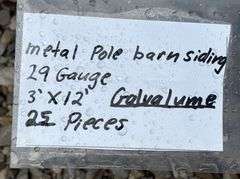 metal Pole barn siding
29 Gauge
3' X 12' Galvalume
25 Pieces